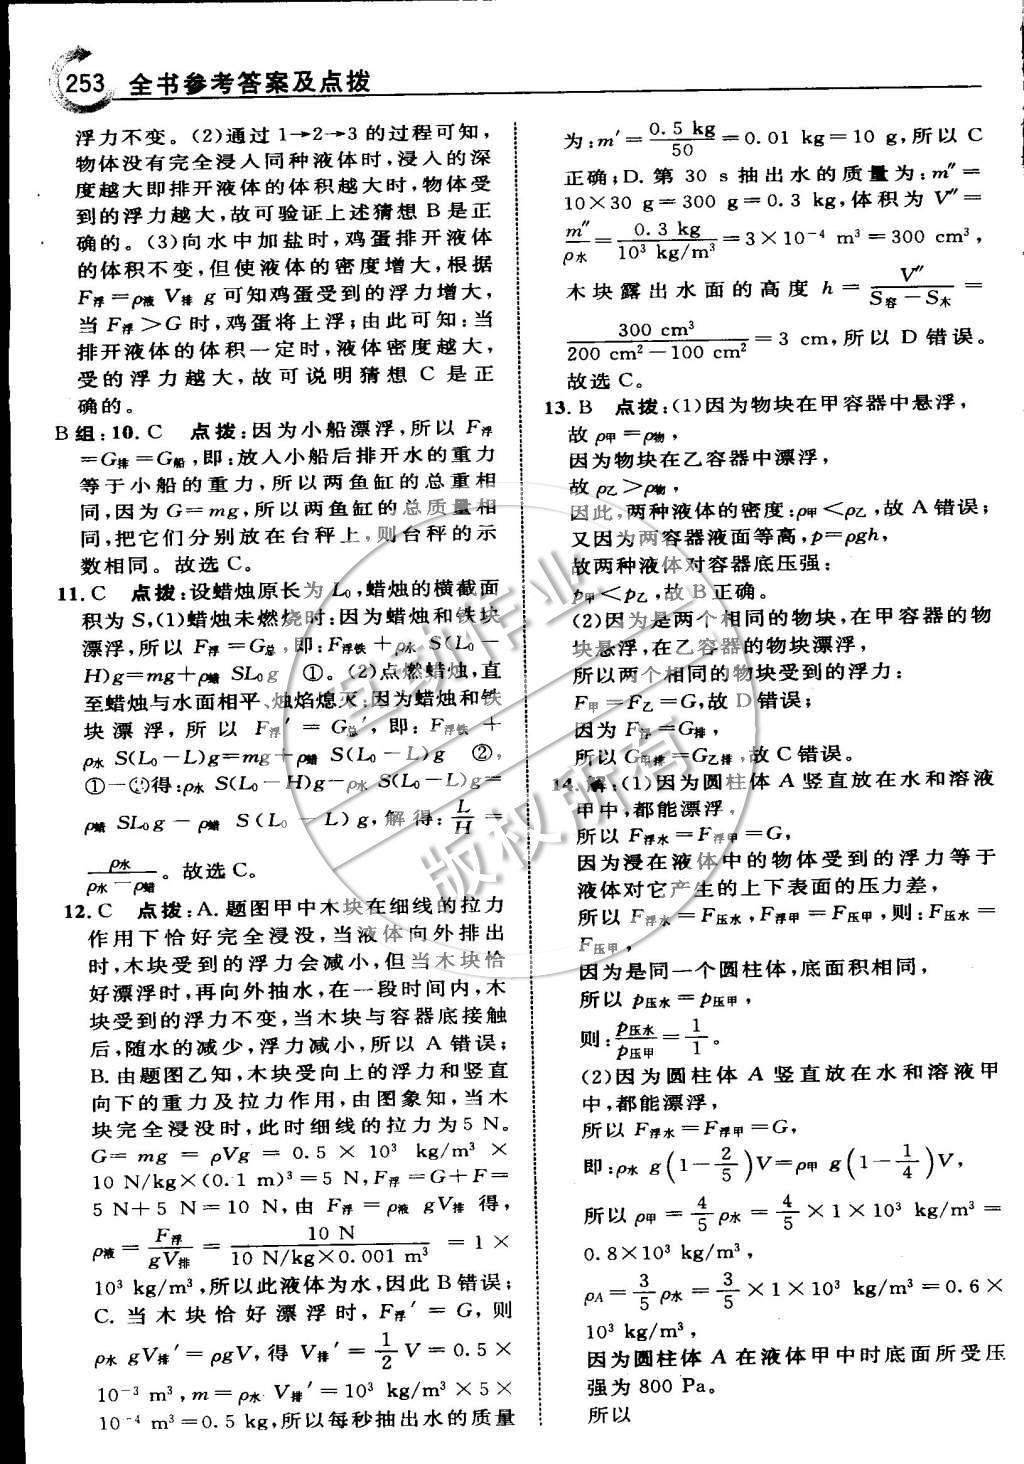 253 全书参考答案及点拨
浮力不变。(2)通过 1→2→3 的过程可知,
物体没有完全浸入同种液体时,浸入的深
度越大即排开液体的体积越大时,物体受
到的浮力越大,故可验证上述猜想 B 是正
确的。(3)向水中加盐时,鸡蛋排开液体
的体积不变,但使液体的密度增大,根据
F浮=ρ液 V排 g 可知鸡蛋受到的浮力增大,
当 F浮>G 时,鸡蛋将上浮;由此可知:当
排开液体的体积一定时,液体密度越大,
受的浮力越大,故可说明猜想 C 是正
确的。
B 组:10. C 点拨:因为小船漂浮,所以 F浮
=G排=G船,即:放入小船后排开水的重力
等于小船的重力,所以两鱼缸的总质量相
同,因为 G=mg,所以两鱼缸的总重力相
同,把它们分别放在台秤上,则台秤的示
数相同。故选 C。
11. C 点拨:设蜡烛原长为 L₀,蜡烛的横截面
积为 S,(1)蜡烛未燃烧时:因为蜡烛和铁块
漂浮,所以 F浮=G总,即:F浮铁+ρ水 S(L₀-
H)g=mg+ρ蜡 SL₀g ①。(2)点燃蜡烛,直
至蜡烛与水面相平,烛焰熄灭:因为蜡烛和铁
块漂浮,所以 F浮′=G总′,即:F浮铁+
ρ水 S(L₀-L)g=mg+ρ蜡 S(L₀-L)g ②,
①-②得:ρ水 S(L₀-H)g-ρ水 S(L₀-L)g=
ρ蜡 SL₀g-ρ蜡 S(L₀-L)g,解得:L/H=
ρ水/(ρ水-ρ蜡)。故选 C。
12. C 点拨:A. 题图甲中木块在细线的拉力
作用下恰好完全浸没,当液体向外排出
时,木块受到的浮力会减小,但当木块恰
好漂浮时,再向外抽水,在一段时间内,木
块受到的浮力不变,当木块与容器底接触
后,随水的减少,浮力减小,所以 A 错误;
B. 由题图乙知,木块受向上的浮力和竖直
向下的重力及拉力作用,由图象知,当木
块完全浸没时,此时细线的拉力为 5 N。
G=mg=ρVg=0.5×10³ kg/m³×
10 N/kg×(0.1 m)³=5 N,F浮=G+F=
5 N+5 N=10 N,由 F浮=ρ液 gV排 得,
ρ液=F浮/gV排=10 N/(10 N/kg×0.001 m³)=1×
10³ kg/m³,所以此液体为水,因此 B 错误;
C. 当木块恰好漂浮时,F浮′=G,则
ρ水 gV排′=ρgV,得 V排′=1/2 V=0.5×
10⁻³ m³,m=ρ水 V排′=10³ kg/m³×5×
10⁻⁴ m³=0.5 kg,所以每秒抽出水的质量
为:m′=0.5 kg/50=0.01 kg=10 g,所以 C
正确;D. 第 30 s 抽出水的质量为:m″=
10×30 g=300 g=0.3 kg,体积为 V″=
m″/ρ水=0.3 kg/10³ kg/m³=3×10⁻⁴ m³=300 cm³,
木块露出水面的高度 h=V″/(S容-S木)=
300 cm³/(200 cm²-100 cm²)=3 cm,所以 D 错误。
故选 C。
13. B 点拨:(1)因为物块在甲容器中悬浮,
故 ρ甲=ρ物,
因为物块在乙容器中漂浮,
故 ρ乙>ρ物,
因此,两种液体的密度:ρ甲<ρ乙,故 A 错误;
又因为两容器液面等高,p=ρgh,
故两种液体对容器底压强:
p甲<p乙,故 B 正确。
(2)因为是两个相同的物块,在甲容器的物
块悬浮,在乙容器的物块漂浮,
所以两个相同的物块受到的浮力:
F甲=F乙=G,故 D 错误;
因为 F浮=G排,
所以 G甲排=G乙排,故 C 错误。
14. 解:(1)因为圆柱体 A 竖直放在水和溶液
甲中,都能漂浮,
所以 F浮水=F浮甲=G,
因为浸在液体中的物体受到的浮力等于
液体对它产生的上下表面的压力差,
所以 F浮水=F压水,F浮甲=F压甲,则:F压水=
F压甲,
因为是同一个圆柱体,底面积相同,
所以 p压水=p压甲,
则:p压水/p压甲=1/1。
(2)因为圆柱体 A 竖直放在水和溶液甲
中,都能漂浮,
所以 F浮水=F浮甲=G,
即:ρ水 g(1-2/5)V=ρ甲 g(1-1/4)V,
所以 ρ甲=4/5 ρ水=4/5×1×10³ kg/m³=
0.8×10³ kg/m³,
ρA=3/5 ρ水=3/5×1×10³ kg/m³=0.6×
10³ kg/m³,
因为圆柱体 A 在液体甲中时底面所受压
强为 800 Pa。
所以
版权所有